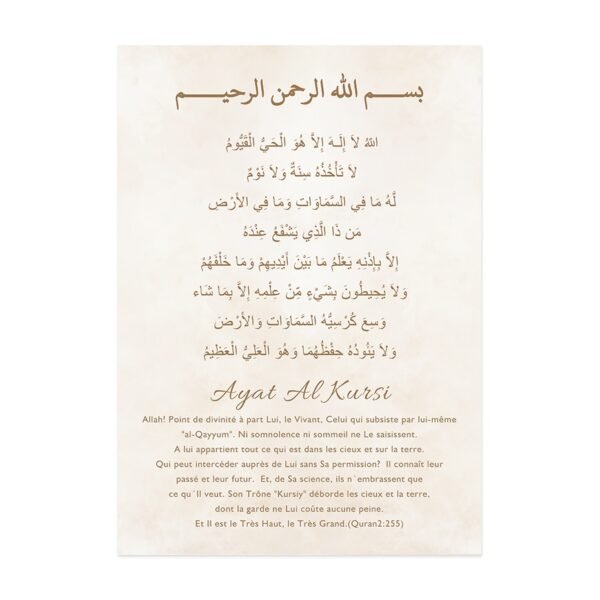 بســـم الله الرحمن الرحيـــم
اللهُ لاَ إِلَـهَ إِلاَّ هُوَ الْحَيُّ الْقَيُّومُ
لاَ تَأْخُذُهُ سِنَةٌ وَلاَ نَوْمٌ
لَّهُ مَا فِي السَّمَاوَاتِ وَمَا فِي الأَرْضِ
مَن ذَا الَّذِي يَشْفَعُ عِنْدَهُ
إِلاَّ بِإِذْنِهِ يَعْلَمُ مَا بَيْنَ أَيْدِيهِمْ وَمَا خَلْفَهُمْ
وَلاَ يُحِيطُونَ بِشَيْءٍ مِّنْ عِلْمِهِ إِلاَّ بِمَا شَاء
وَسِعَ كُرْسِيُّهُ السَّمَاوَاتِ وَالأَرْضَ
وَلاَ يَئُودُهُ حِفْظُهُمَا وَهُوَ الْعَلِيُّ الْعَظِيمُ
Ayat Al Kursi
Allah! Point de divinité à part Lui, le Vivant, Celui qui subsiste par lui-même
"al-Qayyum". Ni somnolence ni sommeil ne Le saisissent.
A lui appartient tout ce qui est dans les cieux et sur la terre.
Qui peut intercéder auprès de Lui sans Sa permission? Il connaît leur
passé et leur futur. Et, de Sa science, ils n`embrassent que
ce qu`Il veut. Son Trône "Kursiy" déborde les cieux et la terre,
dont la garde ne Lui coûte aucune peine.
Et Il est le Très Haut, le Très Grand.(Quran2:255)